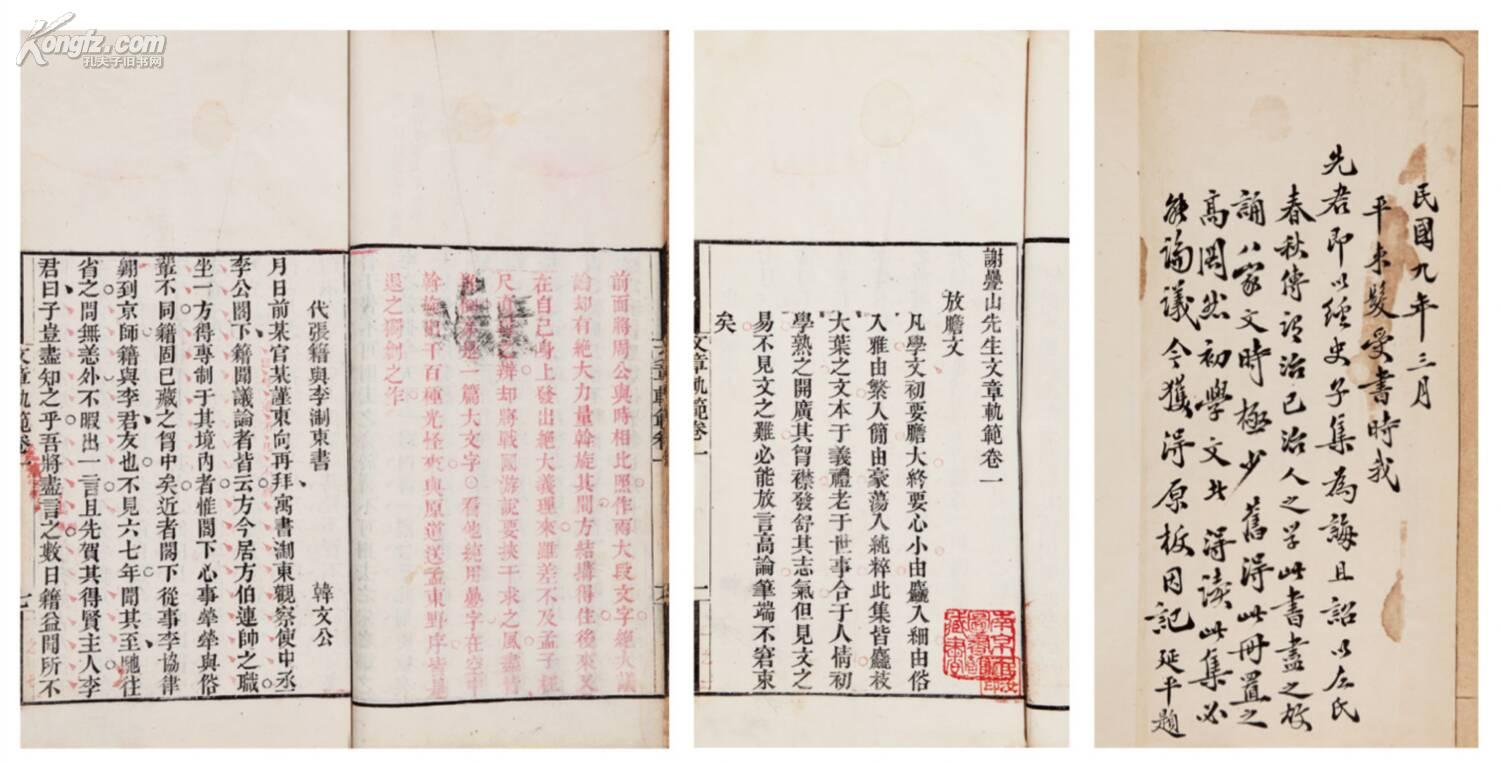 Kongfz.com
孔夫子旧书网
前面將周公與時相比照作兩大段文字絕大議
論却有絕大力量斡旋其間方結搆得住後來又
在自己身上發出絕大義理來雖差不及孟子枉
尺直尋之辨却將戰國游說要挾干求之風盡皆
是一篇大文字○看他絕用疊字在空中
斡旋出千百種光怪來與原道送孟東野序皆是
退之獨創之作
代張籍與李浙東書 韓文公
月日前某官某謹東向再拜寓書浙東觀察使中丞
李公閣下籍聞議論者皆云方今居方伯連帥之職
坐一方得專制于其境內者惟閣下心事犖犖與俗
輩不同籍固已藏之胷中矣近者閣下從事李協律
翺到京師籍與李君友也不見六七年聞其至馳往
省之問無恙外不暇出一言且先賀其得賢主人李
君曰子豈盡知之乎吾將盡言之數日籍益聞所不
文章軌範卷一 七
謝疊山先生文章軌範卷一
放膽文
凡學文初要膽大終要心小由麤入細由俗
入雅由繁入簡由豪蕩入純粹此集皆麤枝
大葉之文本于義禮老于世事合于人情初
學熟之開廣其胷襟發舒其志氣但見文之
易不見文之難必能放言高論筆端不窘束
矣
文章軌範卷一 一
民國九年三月
平未髮受書時我
先君即以經史子集為誨且詔以左氏
春秋傳詳治己治人之學此書盡之故
誦八家文時極少舊得此冊置之
高閣然初學文者得讀此集必
能論議今獲得原板因記延平題